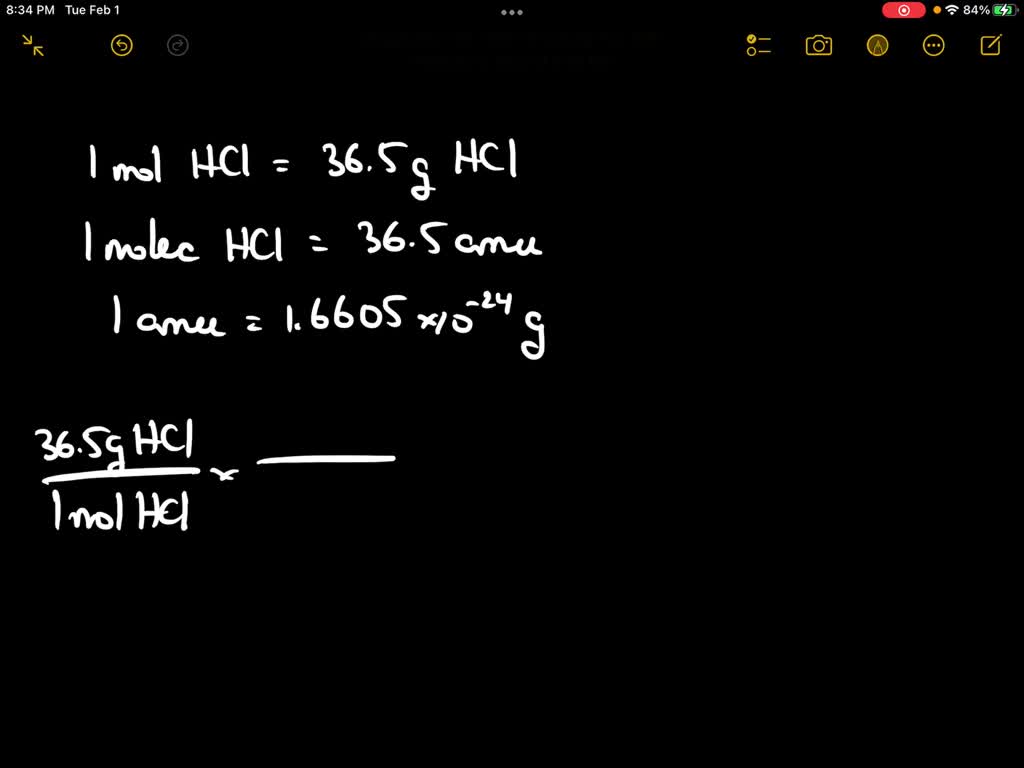 8:34 PM Tue Feb 1 84%
1 mol HCl = 36.5 g HCl
1 molec HCl = 36.5 amu
1 amu = 1.6605 x10^-24 g
36.5g HCl
x
1 mol HCl